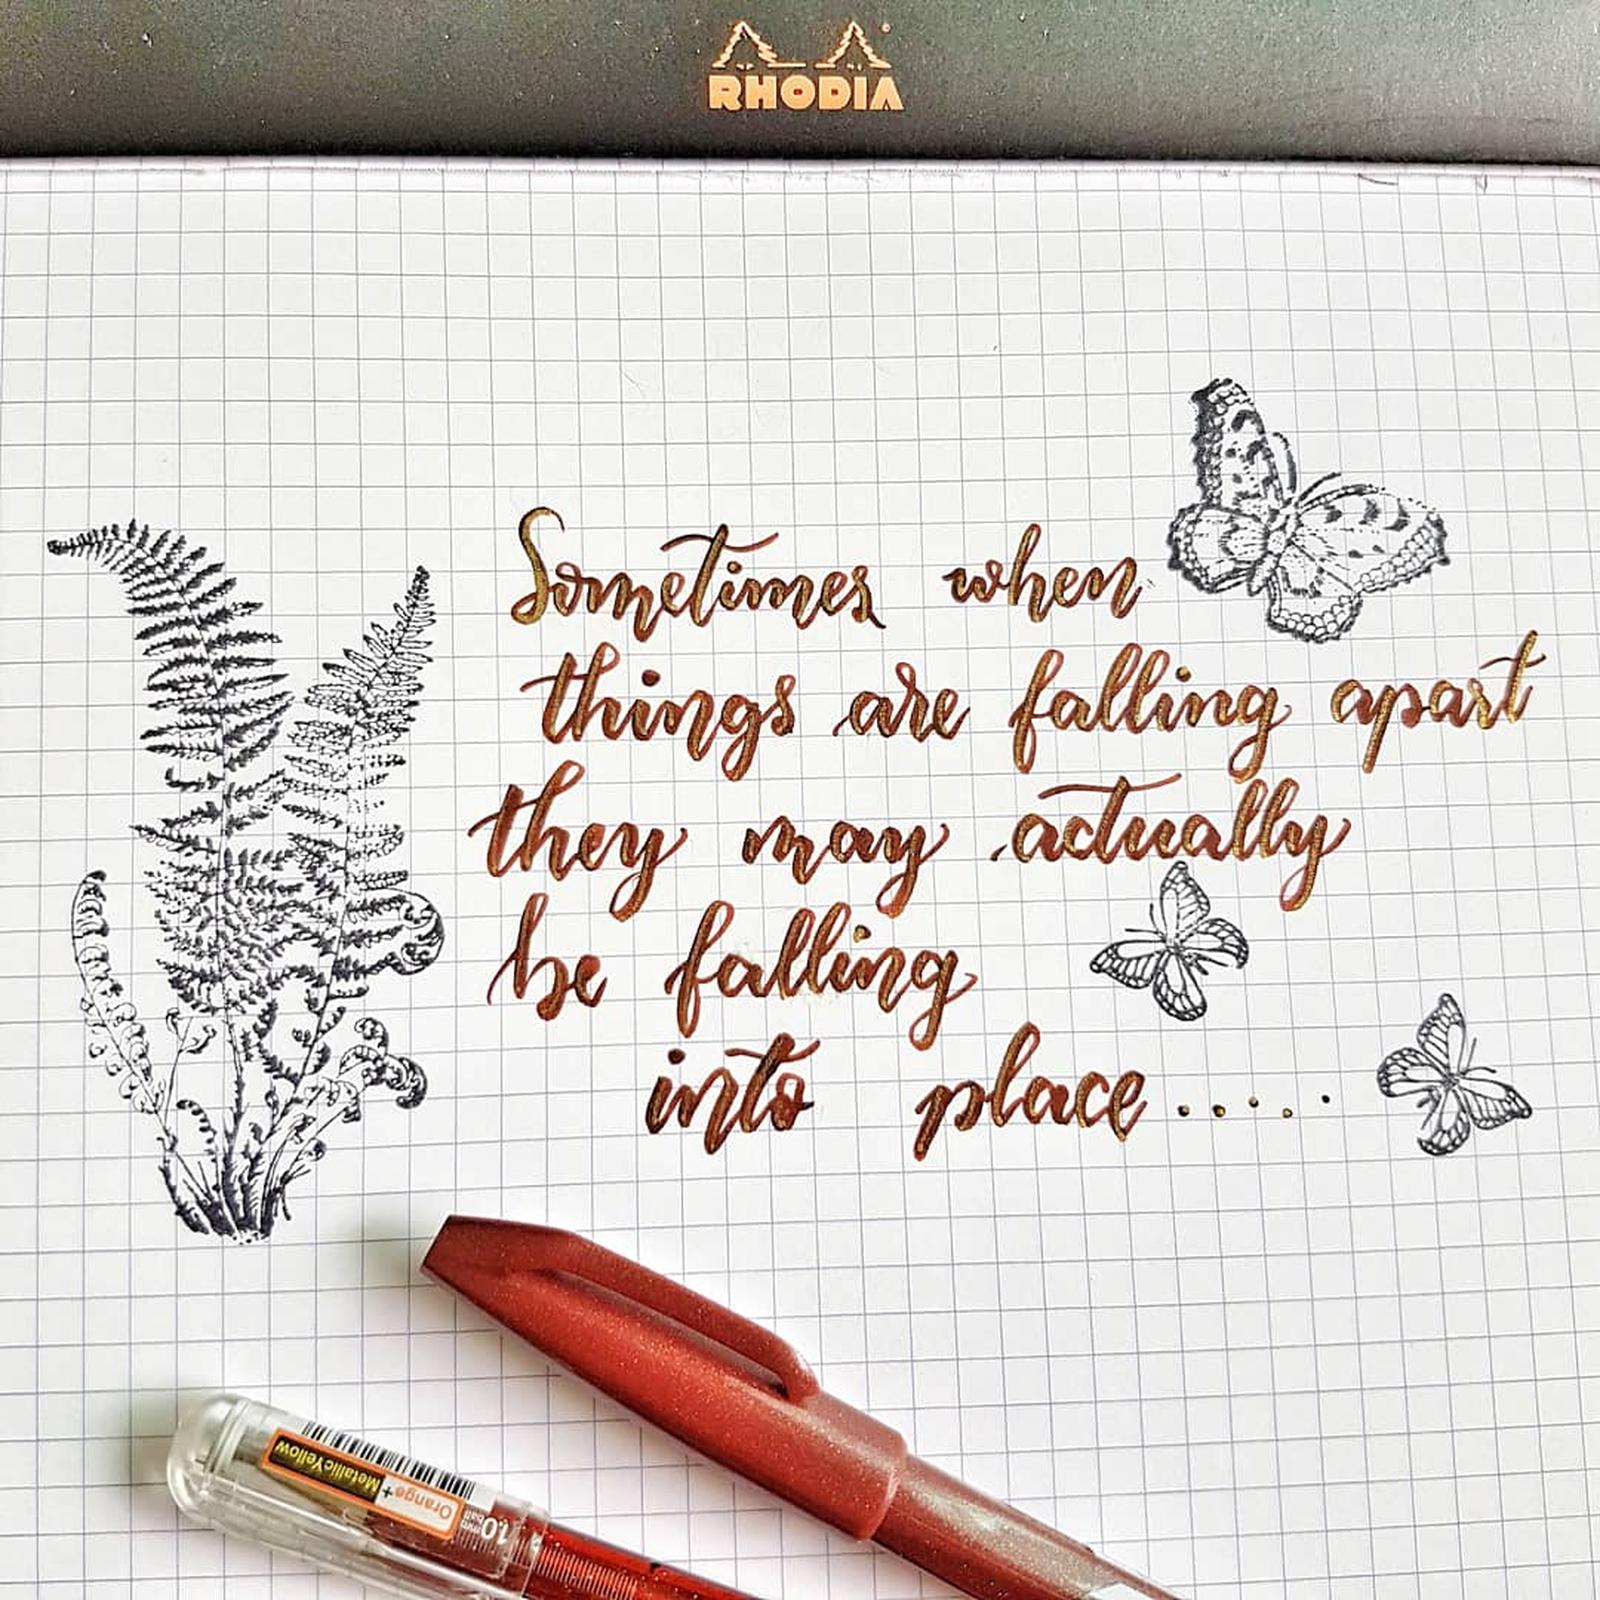 RHODIA
Sometimes when
things are falling apart
they may actually
be falling
into place.....
Orange+
MetallicYellow
1.0mm ball